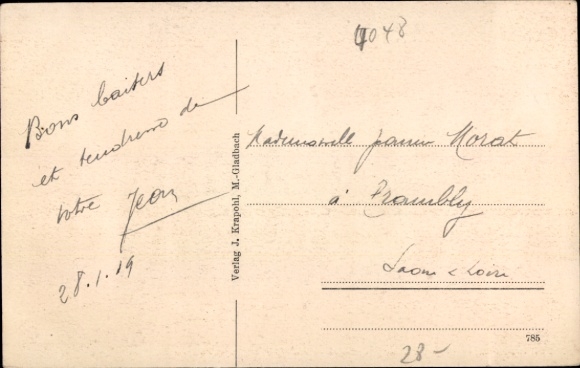 4048
Bons baisers
et tendresse de
votre Jean
28.1.19
Verlag J. Krapohl, M.-Gladbach
Mademoiselle Janin Morat
à Trambly
Saone & Loire
785
28-